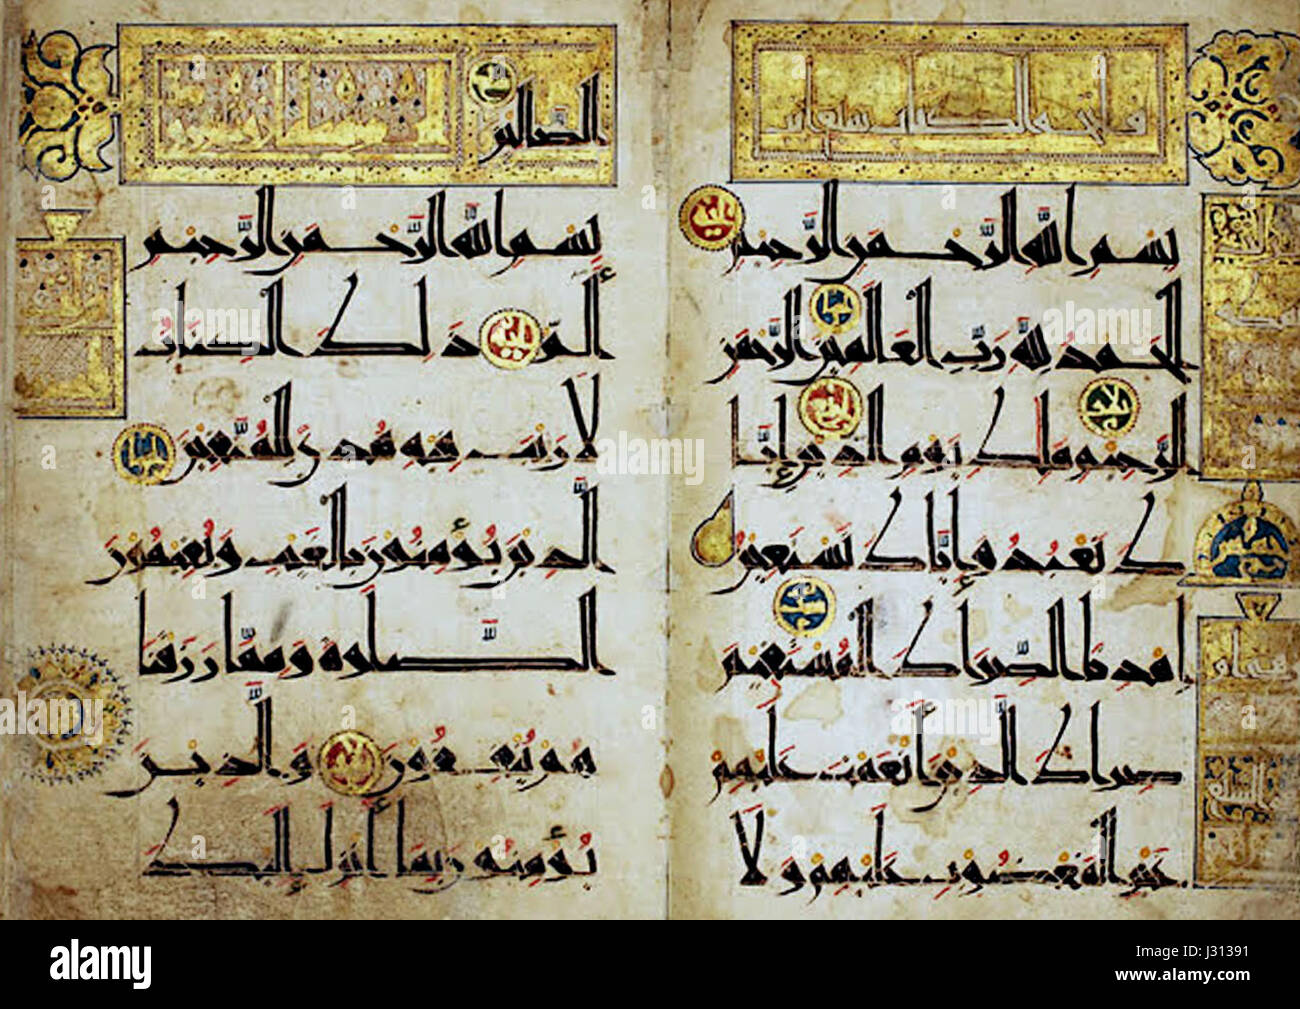 فاتحة الكتاب سبع آيات
بِسْمِ اللَّهِ الرَّحْمَٰنِ الرَّحِيمِ
الْحَمْدُ لِلَّهِ رَبِّ الْعَالَمِينَ الرَّحْمَٰنِ
الرَّحِيمِ مَلِكِ يَوْمِ الدِّينِ إِيَّا
كَ نَعْبُدُ وَإِيَّاكَ نَسْتَعِينُ
اهْدِنَا الصِّرَاطَ الْمُسْتَقِيمَ
صِرَاطَ الَّذِينَ أَنْعَمْتَ عَلَيْهِمْ
غَيْرِ الْمَغْضُوبِ عَلَيْهِمْ وَلَا
الضَّالِّينَ
بِسْمِ اللَّهِ الرَّحْمَٰنِ الرَّحِيمِ
الم ذَٰلِكَ الْكِتَابُ
لَا رَيْبَ فِيهِ هُدًى لِلْمُتَّقِينَ
الَّذِينَ يُؤْمِنُونَ بِالْغَيْبِ وَيُقِيمُونَ
الصَّلَوٰةَ وَمِمَّا رَزَقْنَا
هُمْ يُنْفِقُونَ وَالَّذِينَ
يُؤْمِنُونَ بِمَا أُنْزِلَ إِلَيْكَ
alamy
alamy stock photo
J31391
www.alamy.com